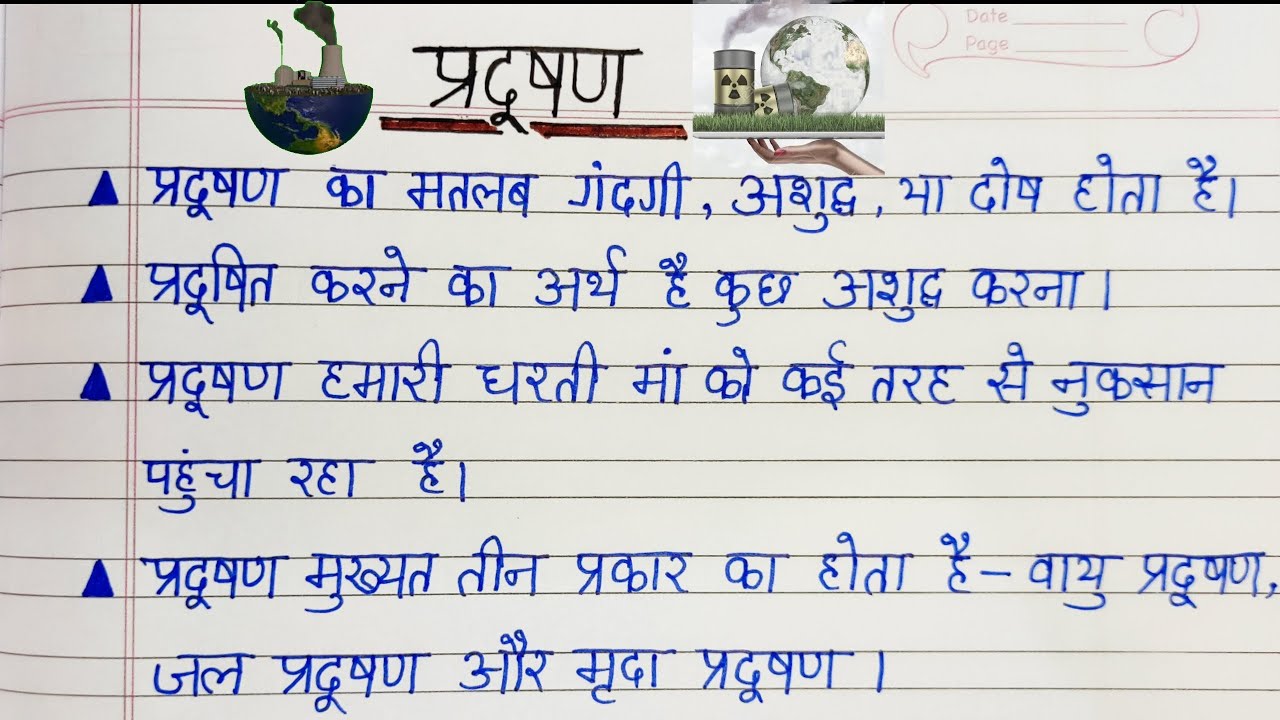 Date
Page
प्रदूषण
▲ प्रदूषण का मतलब गंदगी, अशुद्ध, या दोष होता है।
▲ प्रदूषित करने का अर्थ है कुछ अशुद्ध करना।
▲ प्रदूषण हमारी धरती मां को कई तरह से नुकसान
पहुंचा रहा है।
▲ प्रदूषण मुख्यत तीन प्रकार का होता है – वायु प्रदूषण,
जल प्रदूषण और मृदा प्रदूषण।